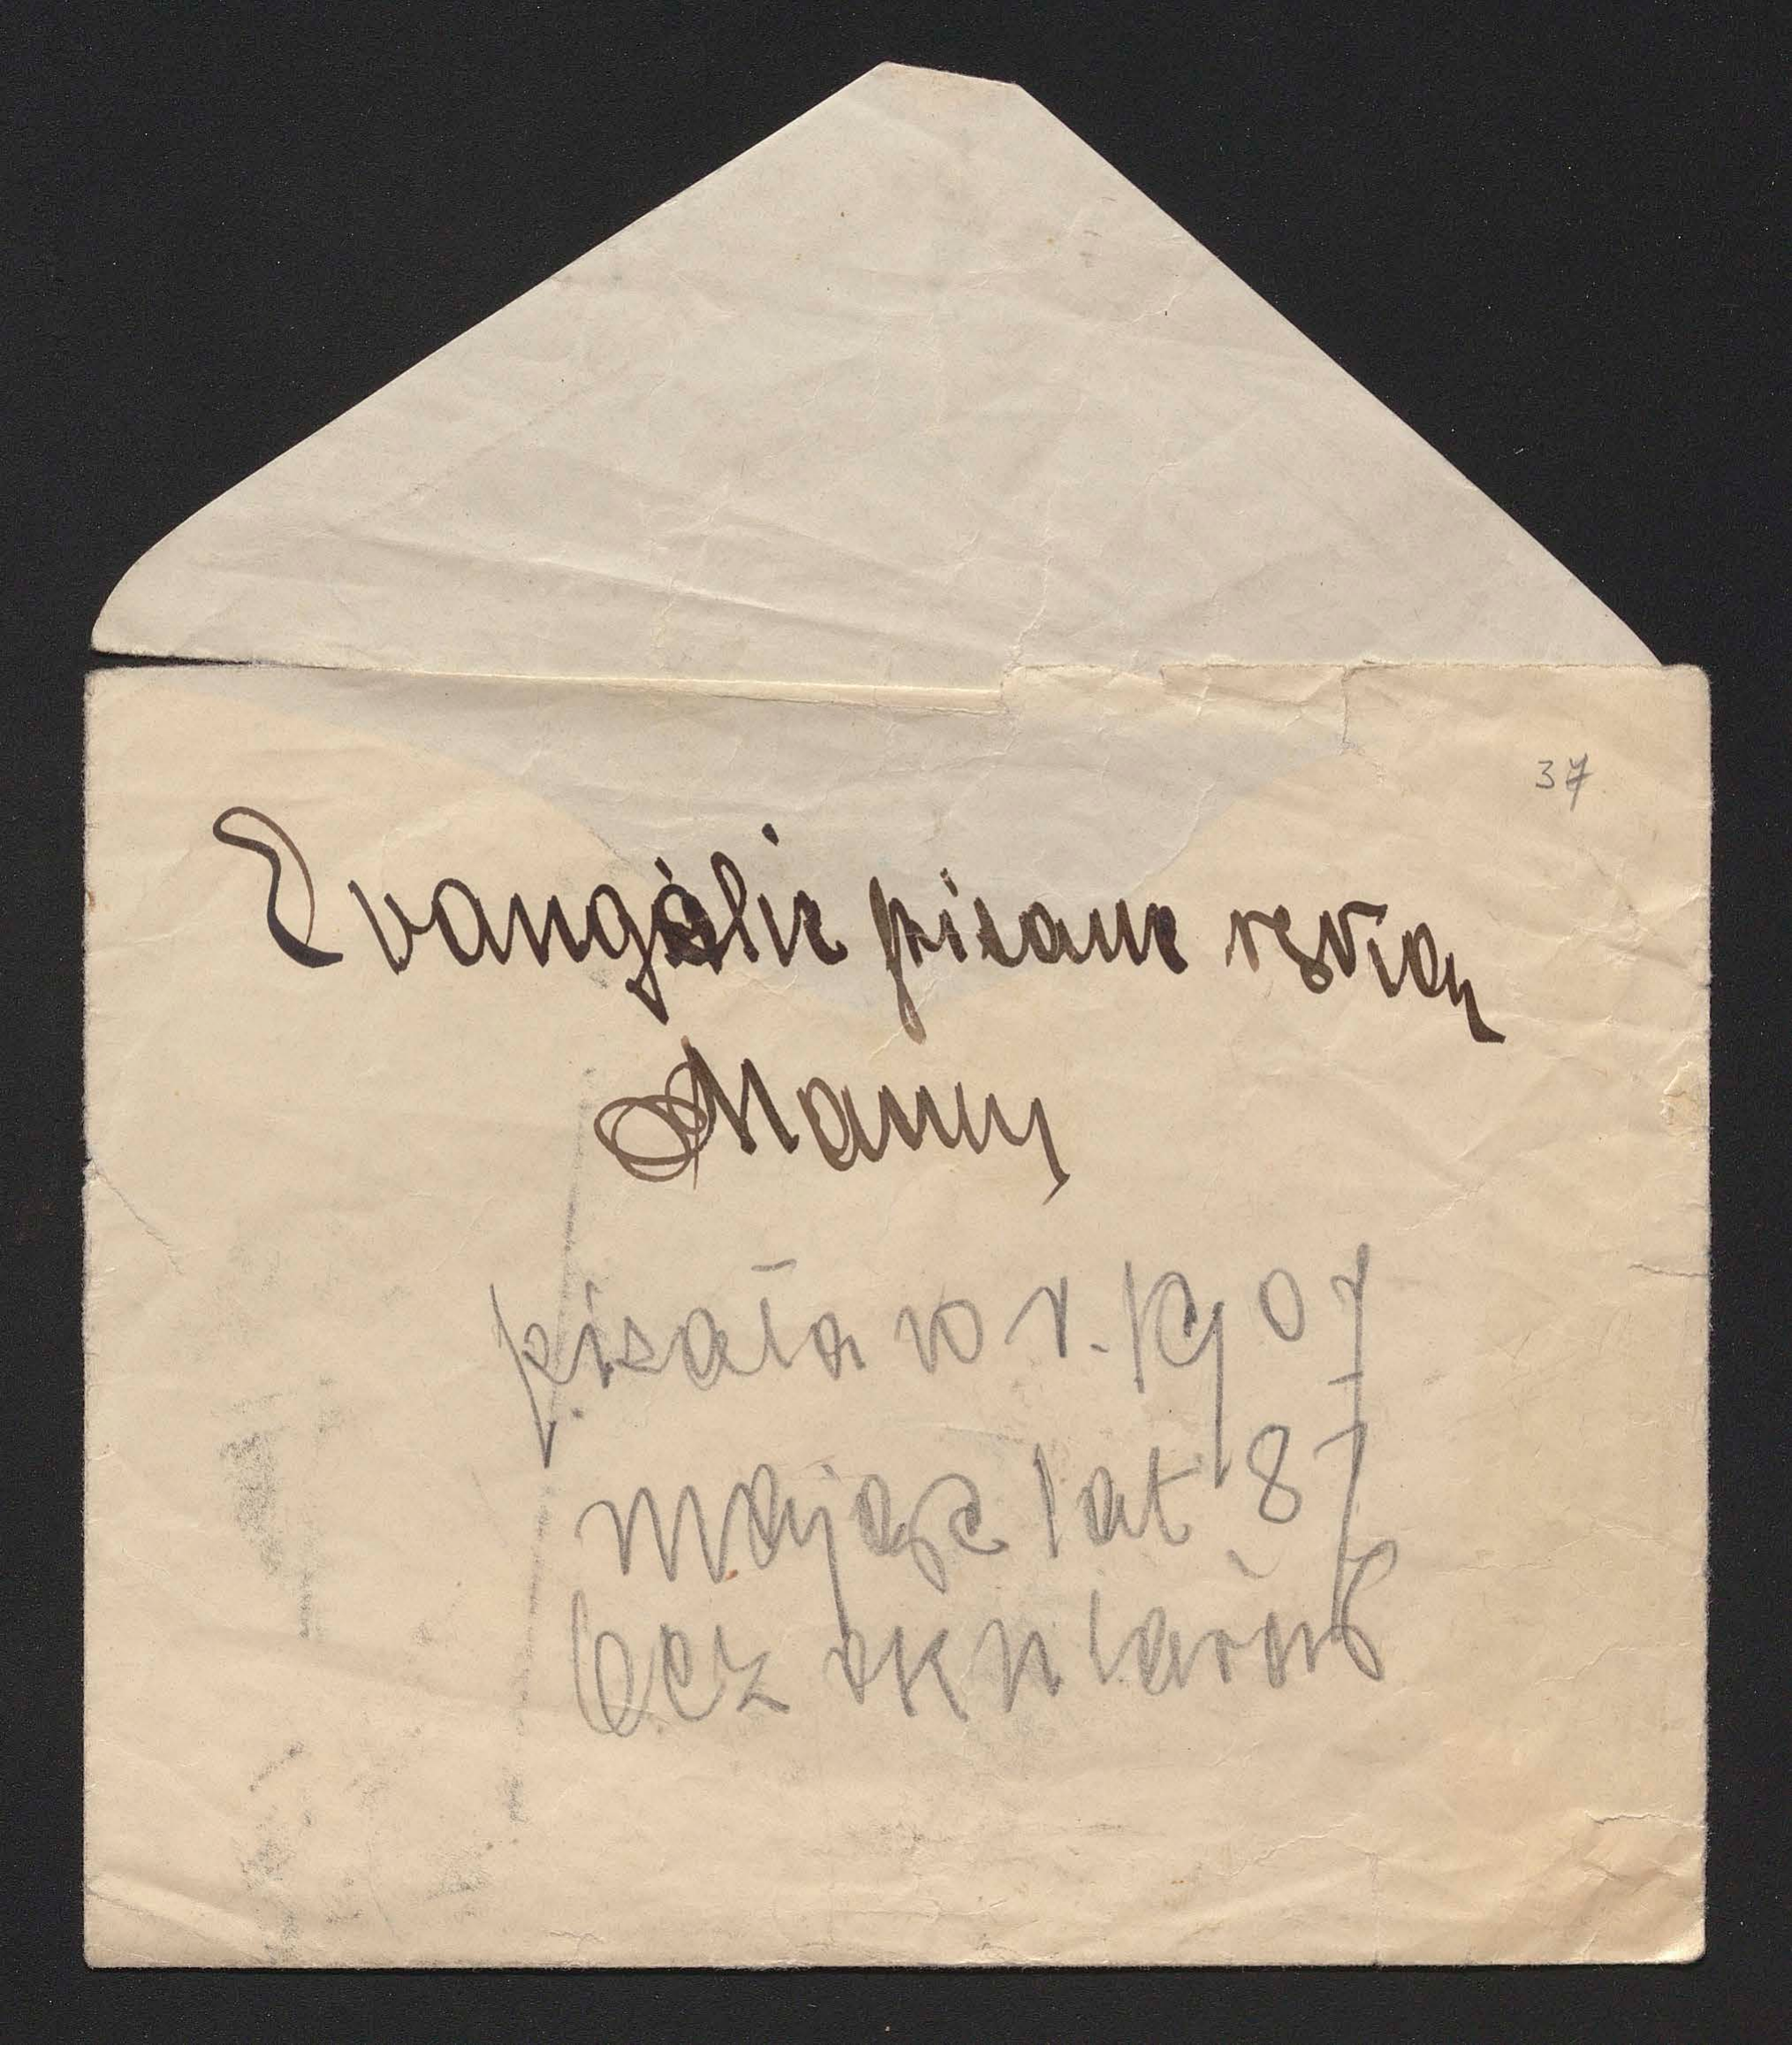 37
Evangelie pisane ręką
Mamy
pisała w r. 1907
mając lat 87
bez okularów